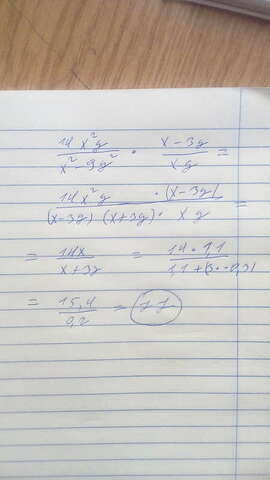 14x²y / x²-9y² · x-3y / xy =
14x²y · (x-3y) / (x-3y) (x+3y) · xy =
= 14x / x+3y = 14·1,1 / 1,1+(3·-0,3)
= 15,4 / 0,2 = 77